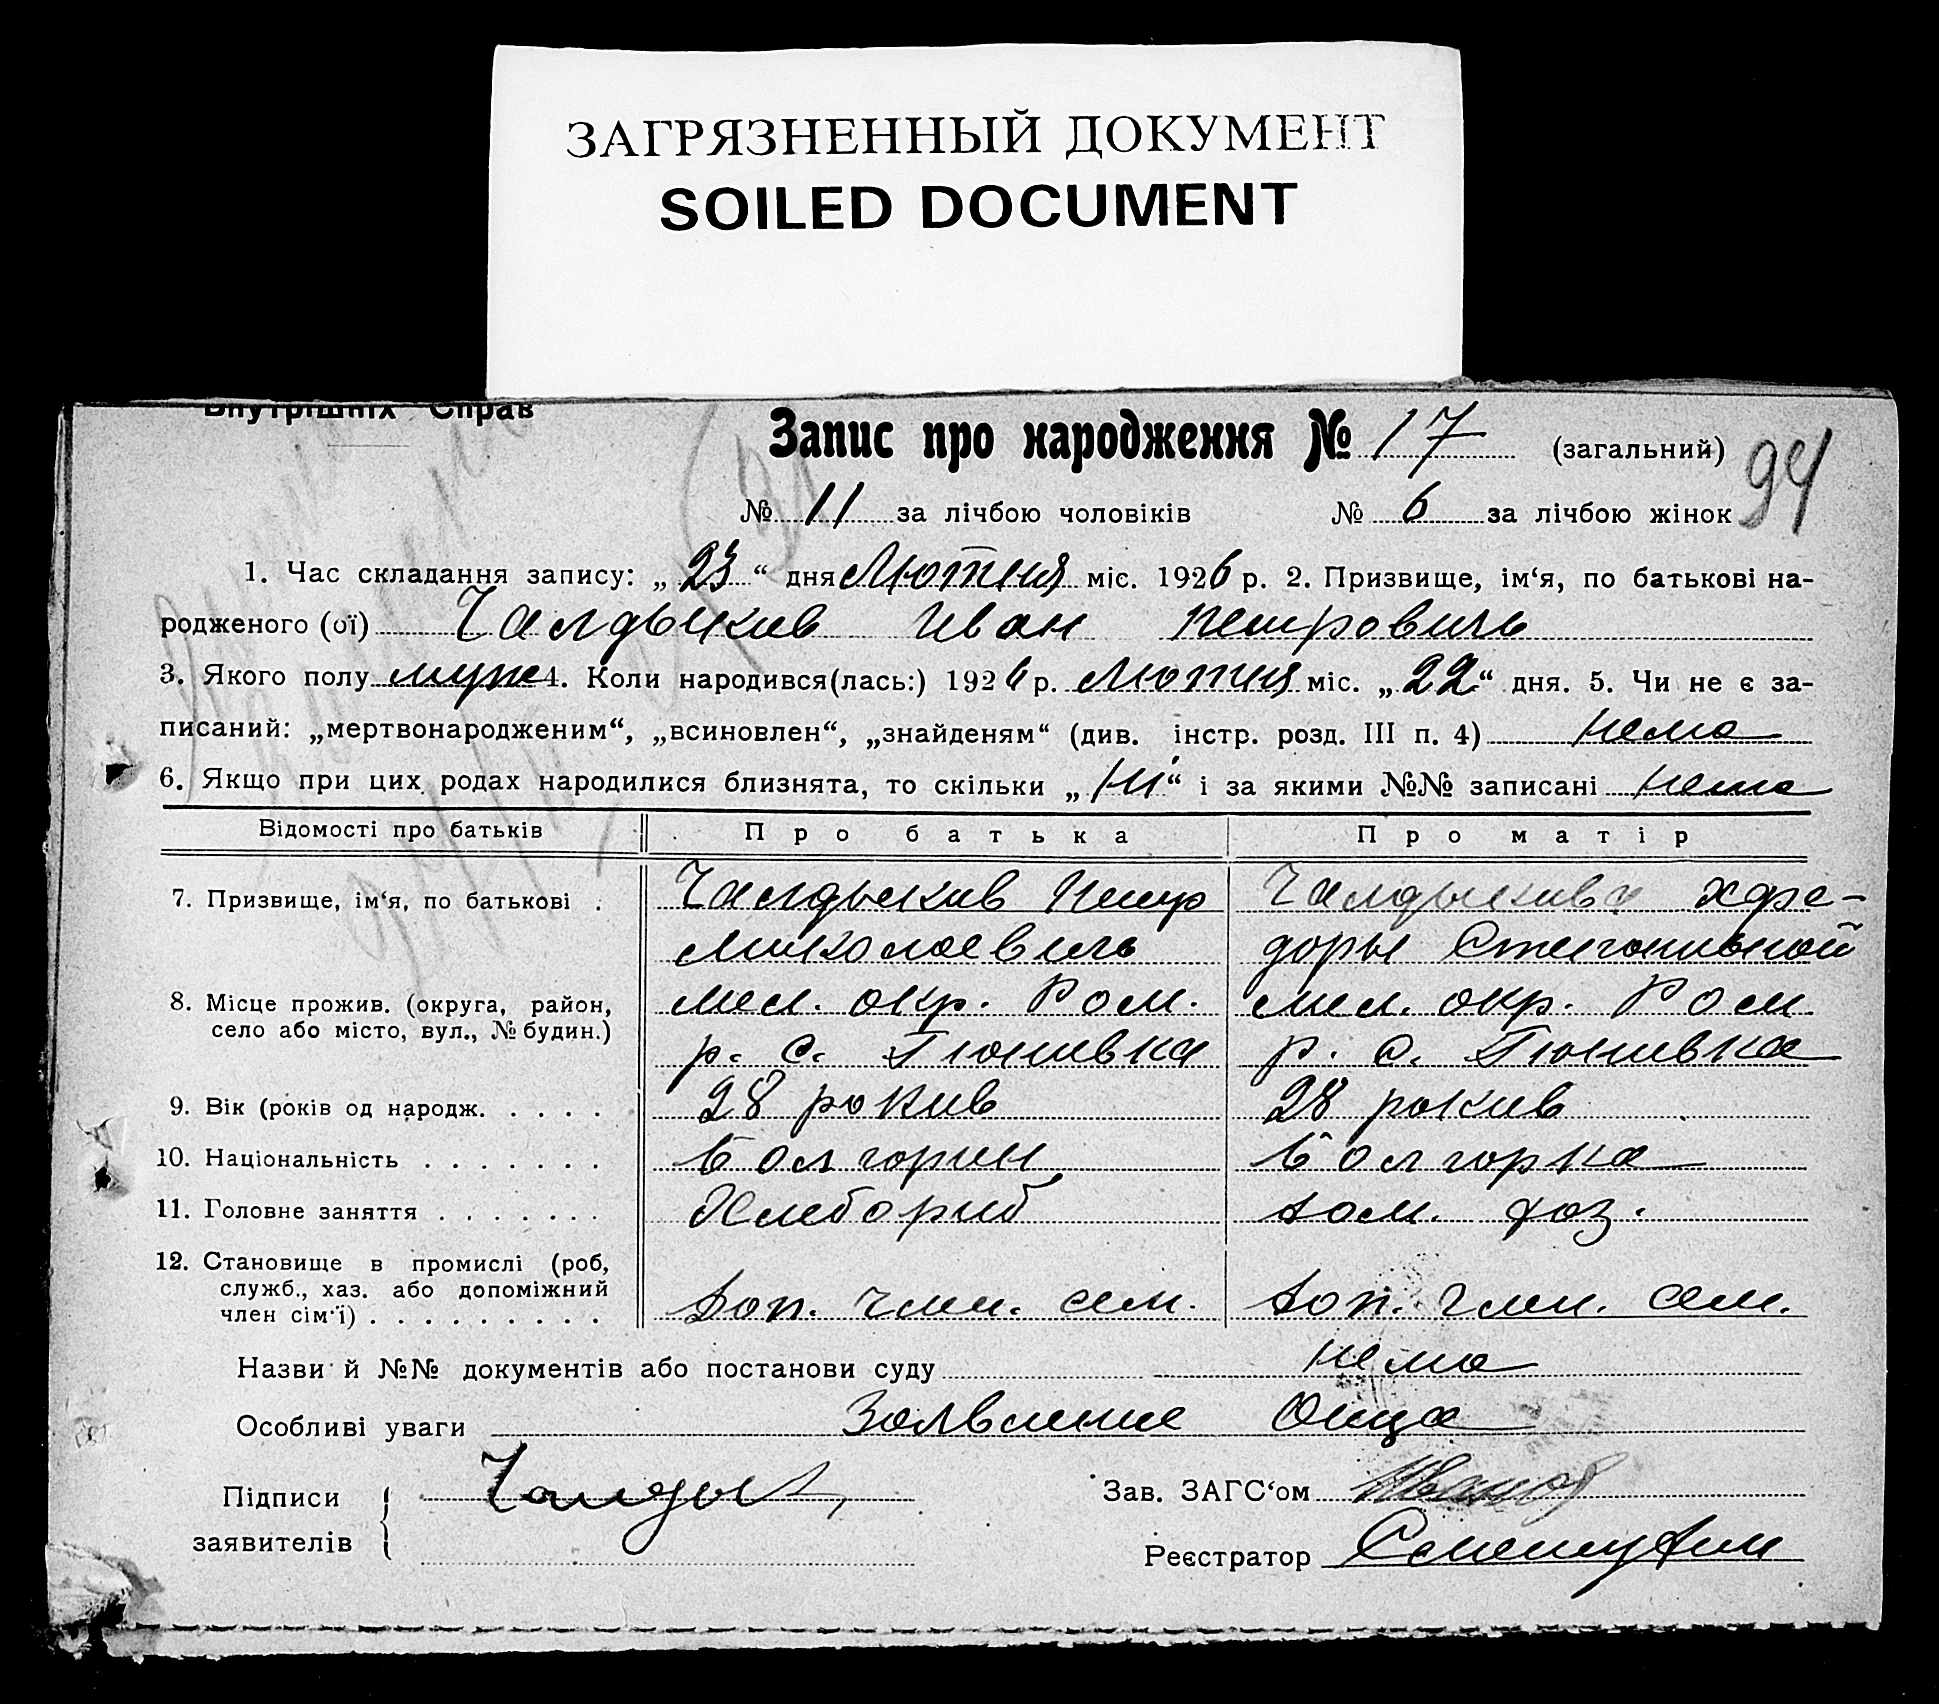 ЗАГРЯЗНЕННЫЙ ДОКУМЕНТ
SOILED DOCUMENT
Внутрішніх Справ
Запис про народження № 17 (загальний)
94
№ 11 за лічбою чоловіків № 6 за лічбою жінок
1. Час складання запису: „ 23 “ дня Лютня міс. 1926 р. 2. Призвище, ім‘я, по батькові на-
родженого (ої) Чалдыкив Иван Петровичь
3. Якого полу муж 4. Коли народився(лась:) 1926 р. Лютня міс. „ 22 “ дня. 5. Чи не є за-
писаний: „мертвонародженим“, „всиновлен“, „знайденям“ (див. інстр. розд. III п. 4) нема
6. Якщо при цих родах народилися близнята, то скільки „ Ні “ і за якими №№ записані нема
Відомості про батьків Про батька Про матір
7. Призвище, ім‘я, по батькові . Чалдыкив Петр Чалдыкива Хфе-
Миколаевичь доры
8. Місце прожив. (округа, район, мел. окр. Ром. мел. окр. Ром.
село або місто, вул., № будин.) р. с. Тюнивка р. с. Тюнивка
9. Вік (років од народж. . . . . 28 рокив 28 рокив
10. Національність . . . . . . . болгорин болгорка
11. Головне заняття . . . . . . . Хлебориб дом. хоз.
12. Становище в промислі (роб,
служб., хаз. або допоміжний
член сім‘ї) . . . . . . . . . доп. член. сем. доп. член. сем.
Назви й №№ документів або постанови суду нема
Особливі уваги Заявление Отца
Підписи Чалдык Зав. ЗАГС‘ом
заявителів Реєстратор